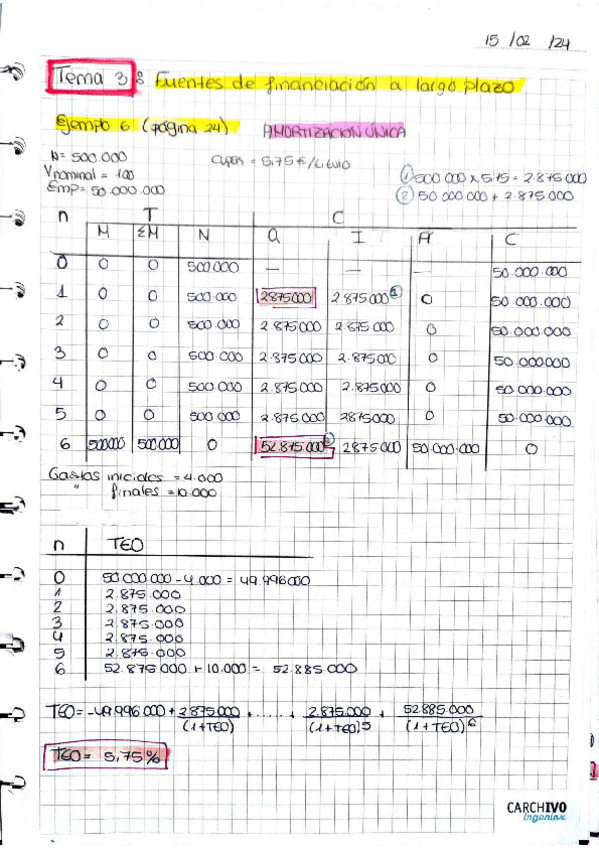 15/02/24
Tema 3: Fuentes de financiación a largo plazo
Ejemplo 6 (página 24) AMORTIZACIÓN ÚNICA
N = 500.000 Cupón = 5,75 €/título ① 500 000 x 5,75 = 2.875 000
Vnominal = 100 ② 50 000 000 + 2.875 000
Emp = 50.000.000
n T C
M ΣM N a I A C
0 0 0 500 000 — — — 50.000.000
1 0 0 500.000 2875000 2.875 000① 0 50 000.000
2 0 0 500.000 2 875 000 2 875 000 0 50.000.000
3 0 0 500.000 2.875.000 2.875.000 0 50.000000
4 0 0 500 000 2.875.000 2.875 000 0 50.000.000
5 0 0 500 000 2 875.000 2875000 0 50.000.000
6 500000 500000 0 52.875.000② 2875 000 50.000.000 0
Gastos iniciales = 4.000
" finales = 10.000
n TEO
0 50 000 000 - 4.000 = 49.996000
1 2.875.000
2 2.875.000
3 2.875.000
4 2.875.000
5 2.875.000
6 52.875 000 + 10.000 = 52.885 000
TEO = -49.996 000 + 2.875.000/(1+TEO) + ...... + 2.875.000/(1+TEO)5 + 52.885.000/(1+TEO)6
TEO = 5,75%
CARCHIVO
IngenioX